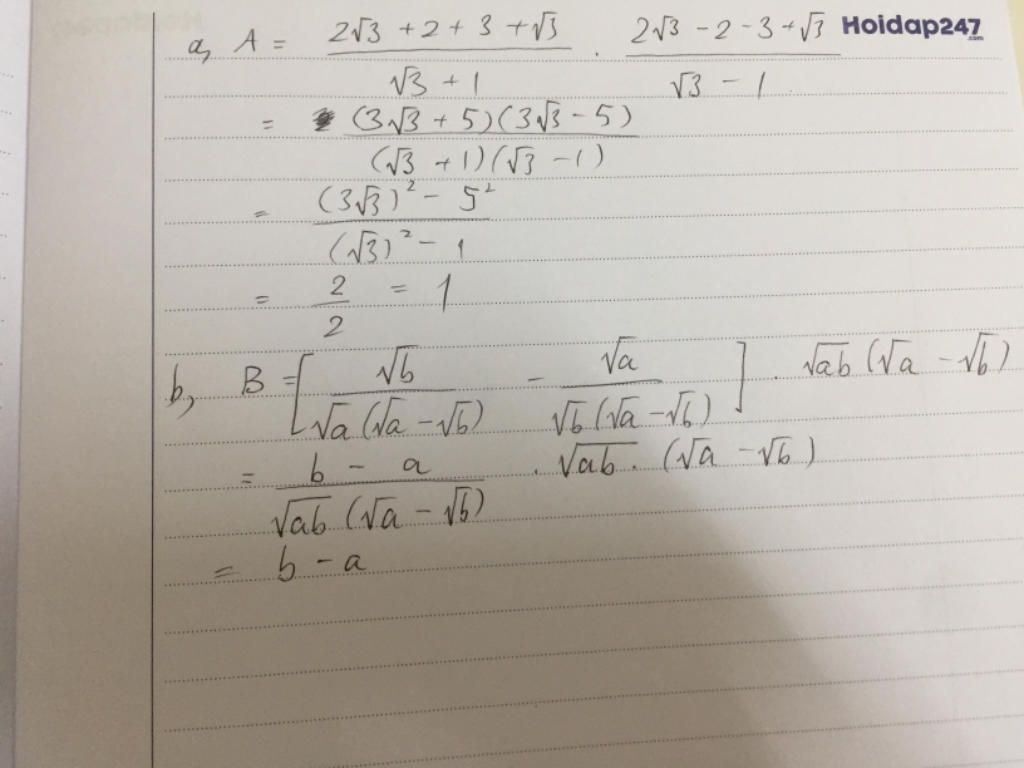 a, A = (2√3 + 2 + 3 + √3)/(√3 + 1) . (2√3 - 2 - 3 + √3)/(√3 - 1)
Hoidap247.com
= (3√3 + 5)(3√3 - 5)/((√3 + 1)(√3 - 1))
= ((3√3)² - 5²)/((√3)² - 1)
= 2/2 = 1
b, B = [√b/(√a(√a - √b)) - √a/(√b(√a - √b))] . √ab (√a - √b)
= (b - a)/(√ab (√a - √b)) . √ab . (√a - √b)
= b - a